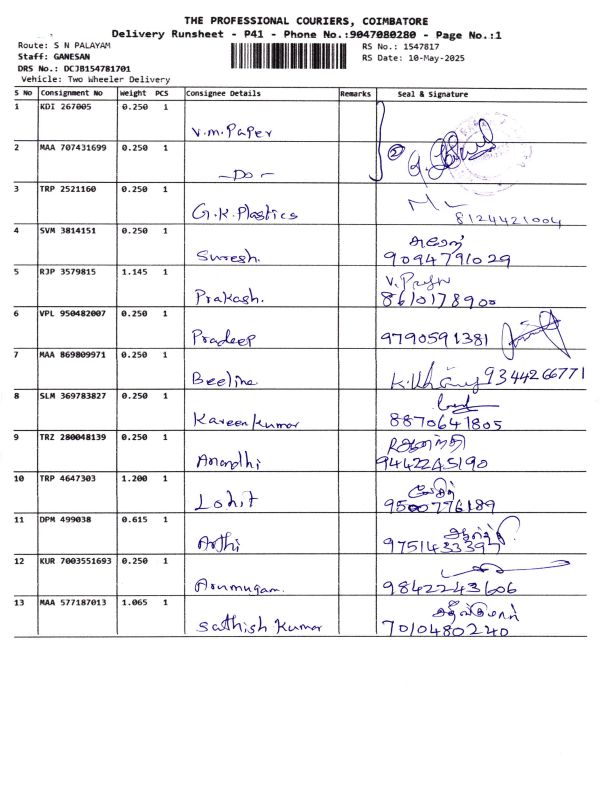 THE PROFESSIONAL COURIERS, COIMBATORE
Delivery Runsheet - P41 - Phone No.:9047080280 - Page No.:1
Route: S N PALAYAM
Staff: GANESAN
DRS No.: DCJB154781701
Vehicle: Two Wheeler Delivery
RS No.: 1547817
RS Date: 10-May-2025
S No Consignment No Weight PCS Consignee Details Remarks Seal & Signature
1 KDI 267005 0.250 1 V.M.Paper
2 MAA 707431699 0.250 1 -Do- 2
3 TRP 2521160 0.250 1 G.K.Plastics 8124421004
4 SVM 3814151 0.250 1 Suresh. சுரேஷ் 9094791029
5 RJP 3579815 1.145 1 Prakash. 8610178900
6 VPL 950482007 0.250 1 Pradeep 9790591381
7 MAA 869809971 0.250 1 Beeline 9344266771
8 SLM 369783827 0.250 1 8870641805
9 TRZ 280048139 0.250 1 9442245190
10 TRP 4647303 1.200 1 Lohit 9500776189
11 DPM 499038 0.615 1 Arthi
12 KUR 7003551693 0.250 1 Arumugam. 9842243606
13 MAA 577187013 1.065 1 Sathish Kumar 7010480240